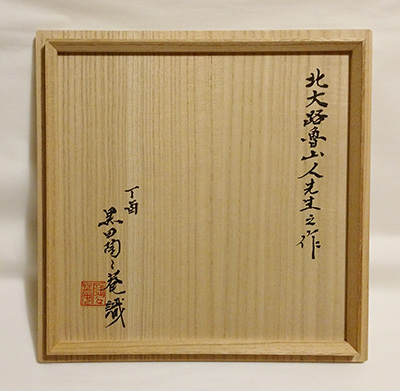 北大路魯山人先生之作
丁酉
黒田陶々菴識